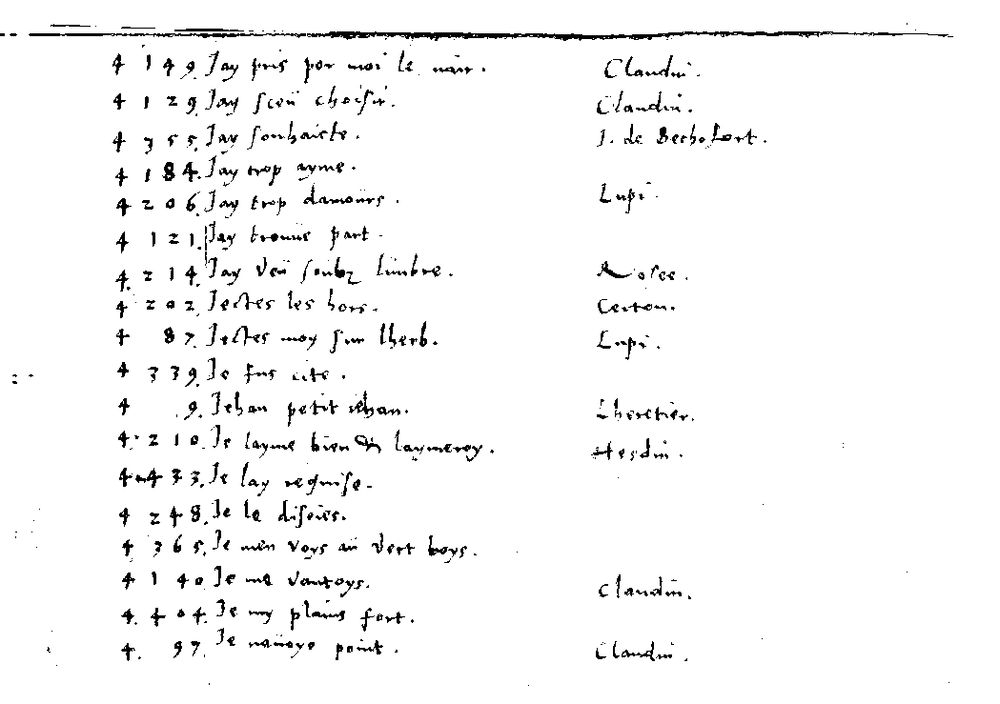 4 149. Jay pris por moi le noir. Claudin.
4 129. Jay sceü choisir. Claudin.
4 355. Jay souhaicte. J. de Bechefort.
4 184. Jay trop ayme.
4 206. Jay trop damours. Lupi.
4 121. Jay trouüe part.
4. 214. Jay veü soubz limbre. Rosee.
4 202. Jectes les hors. Certon.
4 87. Jectes moy sur lherb. Lupi.
4 339. Je fus cite.
4 9. Jehan petit iehan. Lheretier.
4. 210. Je layme bien & laymeroy. Hesdin.
4 433. Je lay requise.
4 248. Je le disoies.
4 365. Je men voys aü vert boys.
4 140 Je me vantoys. Claudin.
4. 404. Je my plains fort.
4. 97. Je naüoye point. Claudin.